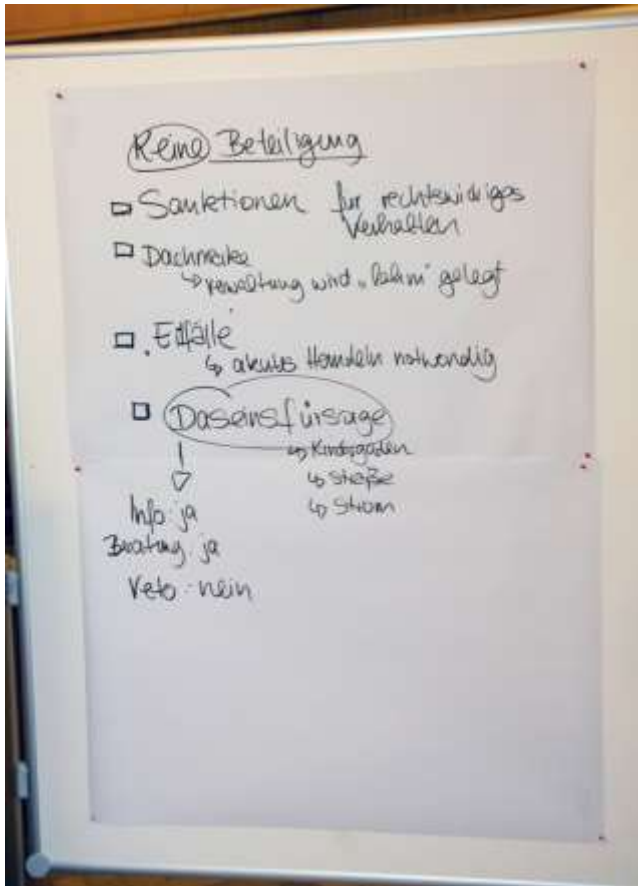 Keine Beteiligung
Sanktionen für rechtswidriges
Verhalten
↳ Verwaltung wird „lahm" gelegt
↳ akutes Handeln notwendig
Daseinsfürsorge
↳ Kindergarten
↳ Straße
↳ Strom
Info: ja
Beratung ja
Veto: nein